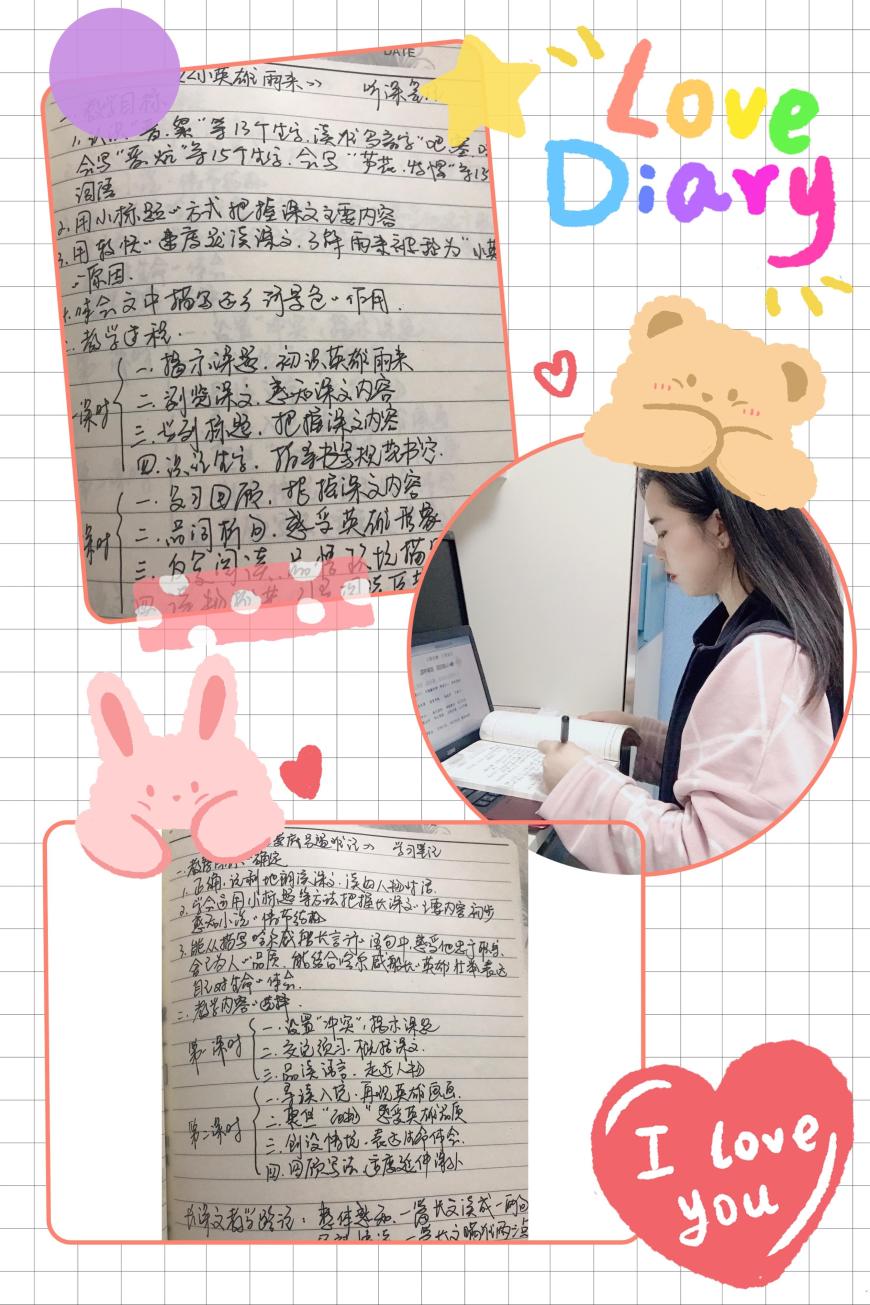 DATE
<<小英雄雨来>>
听课笔记
教学目标
1. 认识"晋、絮"等13个生字,读准多音字"吧、塞
会写"晋、炕"等15个生字,会写"芦花、
词语
2. 用小标题的方式把握课文主要内容
3. 用较快的速度默读课文,了解雨来被称为"小英
的原因.
体会文中描写还乡河景色的作用.
二. 教学过程.
课时
一. 揭示课题,初识英雄雨来
二. 浏览课文,感知课文内容
三. 列标题,把握课文内容
四. 识记生字,指导书写规范书写.
课时
一. 复习回顾,把握课文内容
二. 品词析句,感受英雄形象
三.
四.
Love
Diary
学习笔记
一. 教学目标的确定
1. 正确、流利地朗读课文,读好人物对话.
2. 学会运用小标题等方法把握长课文的主要内容,初步
感知小说的情节结构
3. 能从描写哈尔威船长言行的语句中,感受他忠于职守、
舍己为人的品质,能结合哈尔威船长的英雄壮举表达
自己对生命的体会.
二. 教学内容的选择.
第一课时
一. 设置"冲突",揭示课题
二. 交流预习,概括课文.
三. 品读语言,走近人物
第二课时
一. 导读入境,再现英雄画面
二. 感受英雄品质
三. 创设情境,表达生命体会.
四. 回顾写法,适度延伸课外
长课文教学路论:整体感知,一篇长文读成一两句
I love
you